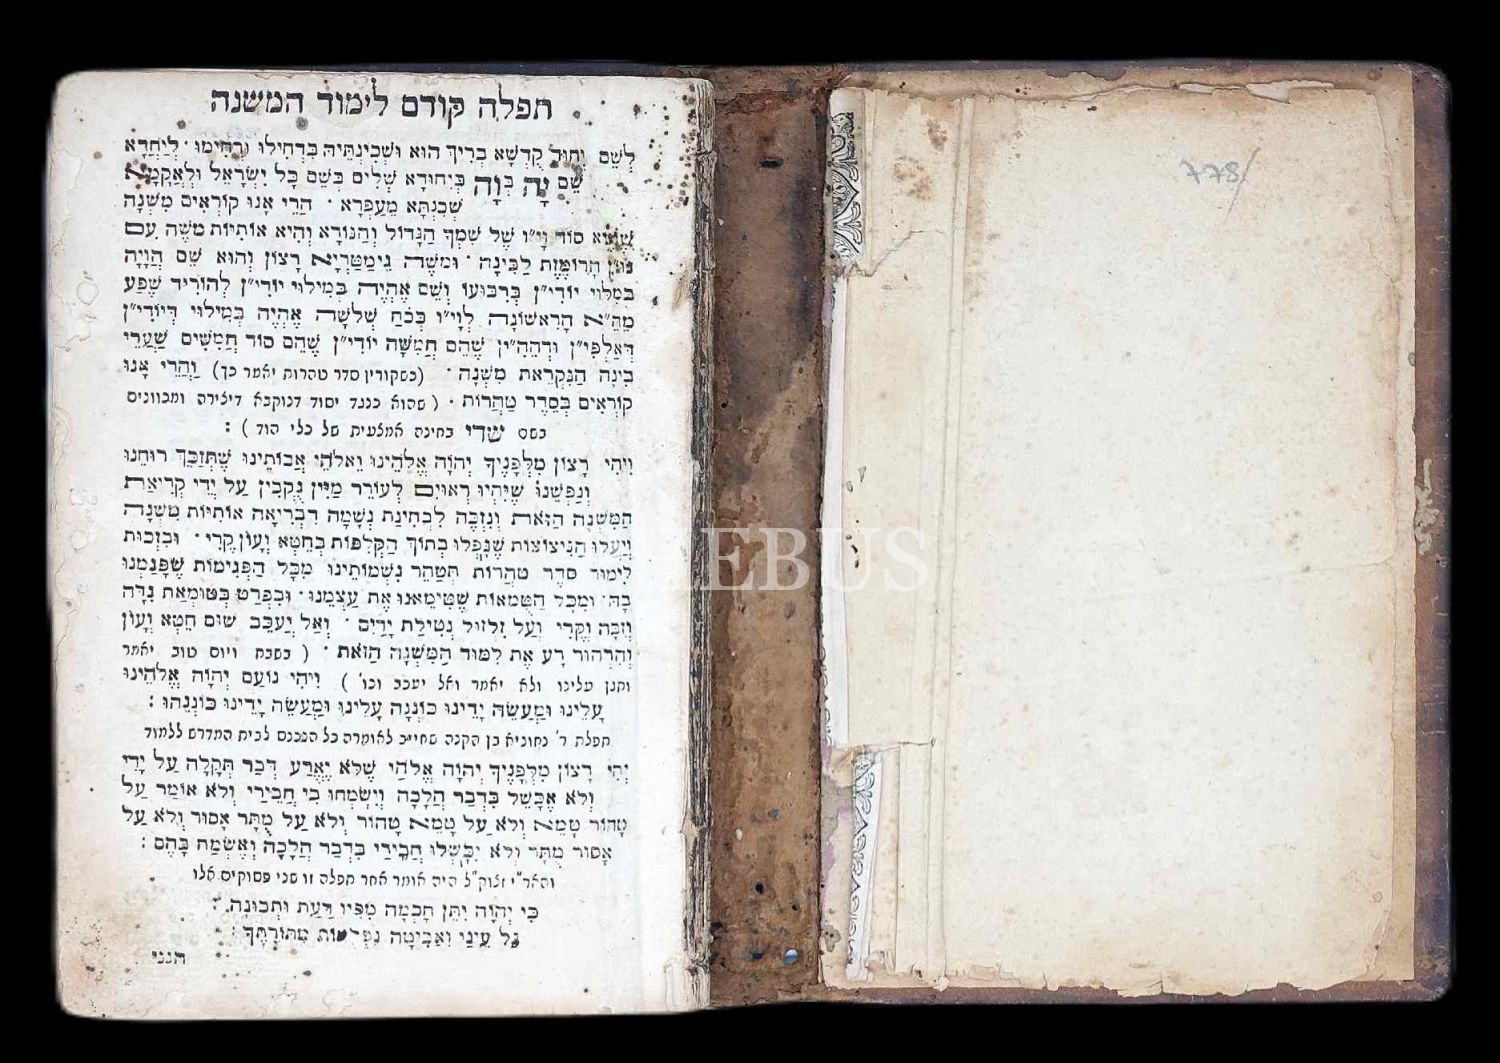 תפלה קודם לימוד המשנה
לְשֵׁם יִחוּד קֻדְשָׁא בְּרִיךְ הוּא וּשְׁכִינְתֵּיהּ בִּדְחִילוּ וּרְחִימוּ · לְיַחֲדָא
שֵׁם יָ"הּ בְּוָ"ה בְּיִחוּדָא שְׁלִים בְּשֵׁם כָּל יִשְׂרָאֵל וּלְאֲקָמָא
שְׁכִנְתָּא מֵעַפְרָא · הֲרֵי אָנוּ קוֹרְאִים מִשְׁנָה
שֶׁהוּא סוֹד וָי"ו שֶׁל שִׁמְךָ הַגָּדוֹל וְהַנּוֹרָא וְהִיא אוֹתִיּוֹת מֹשֶׁה עִם
נוּ"ן הָרוֹמֶזֶת לַבִּינָה · וּמֹשֶׁה גִימַטְרִיָּא רָצוֹן וְהוּא שֵׁם הֲוָיָה
בְּמִלּוּי יוֹדִי"ן בְּרִבּוּעוֹ וְשֵׁם אֶהְיֶה בְּמִילוּי יוֹדִי"ן לְהוֹרִיד שֶׁפַע
מֵהֵ"א הָרִאשׁוֹנָה לְוָי"ו בְּכֹחַ שְׁלֹשָׁה אֶהְיֶה בְּמִילּוּי דְּיוֹדִי"ן
דְּאַלְפִי"ן וּדְהֵהִי"ן שֶׁהֵם חֲמִשָּׁה יוֹדִי"ן שֶׁהֵם סוֹד חֲמִשִּׁים שַׁעֲרֵי
בִינָה הַנִּקְרֵאת מִשְׁנָה · (כשקורין סדר טהרות יאמר כך) וַהֲרֵי אָנוּ
קוֹרְאִים בְּסֵדֶר טָהֳרוֹת · ( שהוא כנגד יסוד דנוקבא דיצירה ומכוונים
בשם שדי בחינה אמצעית של כלי הוד ) :
וִיהִי רָצוֹן מִלְּפָנֶיךָ יְהֹוָה אֱלֹהֵינוּ וֵאלֹהֵי אֲבוֹתֵינוּ שֶׁתְּזַכֵּךְ רוּחֵנוּ
וְנַפְשֵׁנוּ שֶׁיִּהְיוּ רְאוּיִם לְעוֹרֵר מַיִּין נֻקְבִין עַל יְדֵי קְרִיאַת
הַמִּשְׁנָה הַזֹּאת וְנִזְכֶּה לִבְחִינַת נְשָׁמָה דִּבְרִיאָה אוֹתִיּוֹת מִשְׁנָה
וְיַעֲלוּ הַנִּיצוֹצוֹת שֶׁנָּפְלוּ בְתוֹךְ הַקְּלִפּוֹת בְּחֵטְא וְעָוֹן קֶרִי · וּבִזְכוּת
לִימוּד סֵדֶר טָהֳרוֹת תְּטַהֵר נִשְׁמוֹתֵינוּ מִכָּל הַפְּגִימוֹת שֶׁפָּגַמְנוּ
בָהּ · וּמִכָּל הַטֻּמְאוֹת שֶׁטִּימֵאנוּ אֶת עַצְמֵנוּ · וּבִפְרָט בְּטוּמְאַת נִדָּה
וְזִבָּה וְקֶרִי וְעַל זִלְזוּל נְטִילַת יָדַיִם · וְאַל יְעַכֵּב שׁוּם חֵטְא וְעָוֹן
וְהִרְהוּר רַע אֶת לִמּוּד הַמִּשְׁנָה הַזֹּאת · ( בשבת ויום טוב יאמר
ותגן עלינו ולא יאמר ואל יעכב וכו' ) וִיהִי נוֹעַם יְהֹוָה אֱלֹהֵינוּ
עָלֵינוּ וּמַעֲשֵׂה יָדֵינוּ כּוֹנְנָה עָלֵינוּ וּמַעֲשֵׂה יָדֵינוּ כּוֹנְנֵהוּ :
תפלת ר' נחוניא בן הקנה שחייב לאומרה כל הנכנס לבית המדרש ללמוד
יְהִי רָצוֹן מִלְּפָנֶיךָ יְהֹוָה אֱלֹהַי שֶׁלֹּא יֶאֱרַע דְּבַר תְּקָלָה עַל יָדִי
וְלֹא אֶכָּשֵׁל בִּדְבַר הֲלָכָה וְיִשְׂמְחוּ בִי חֲבֵירַי וְלֹא אוֹמַר עַל
טָהוֹר טָמֵא וְלֹא עַל טָמֵא טָהוֹר וְלֹא עַל מֻתָּר אָסוּר וְלֹא עַל
אָסוּר מֻתָּר וְלֹא יִכָּשְׁלוּ חֲבֵירַי בִּדְבַר הֲלָכָה וְאֶשְׂמַח בָּהֶם :
והאר"י זצוק"ל היה אומר אחר תפלה זו שני פסוקים אלו
כִּי יְהֹוָה יִתֵּן חָכְמָה מִפִּיו דַּעַת וּתְבוּנָה :
גַּל עֵינַי וְאַבִּיטָה נִפְלָאוֹת מִתּוֹרָתֶךָ :
הנני
778/
EBUS